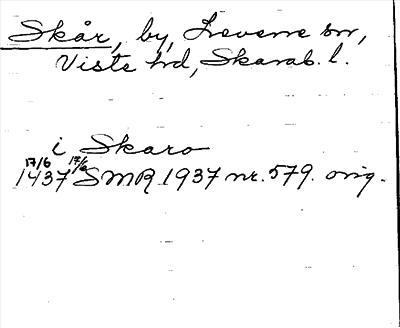 Skår, by, Levene sn,
Viste hd, Skarab. l.
i Skaro
17/6 17/6
1437 SMR 1937 nr. 579. orig.